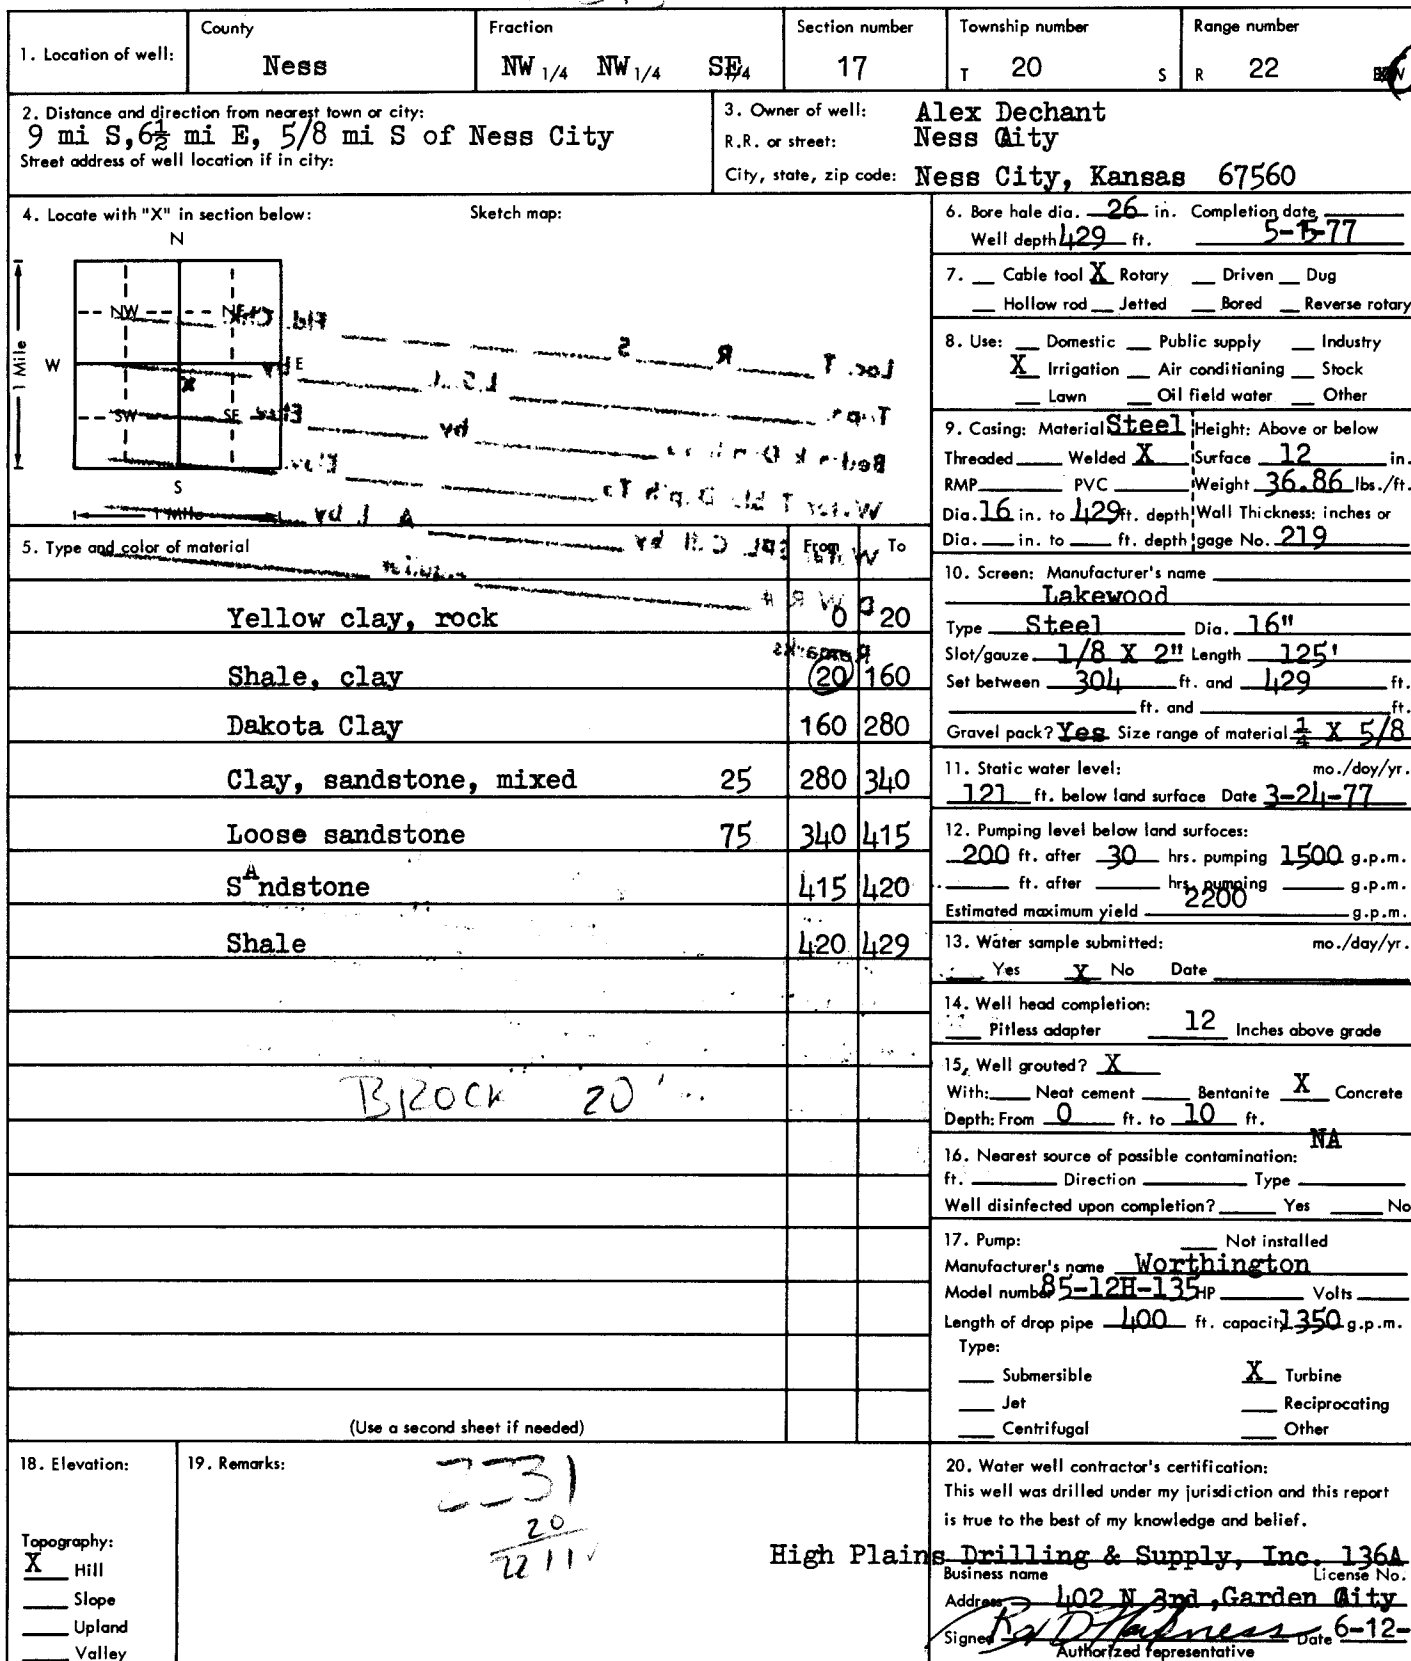 County Fraction Section number Township number Range number
1. Location of well: Ness NW 1/4 NW 1/4 SE 1/4 17 T 20 S R 22 W
2. Distance and direction from nearest town or city:
9 mi S,6½ mi E, 5/8 mi S of Ness City
Street address of well location if in city:
3. Owner of well: Alex Dechant
R.R. or street: Ness City
City, state, zip code: Ness City, Kansas 67560
4. Locate with "X" in section below: Sketch map:
N
NW NE
1 Mile W E
X
SW SE
S
1 Mile
5. Type and color of material From To
Yellow clay, rock 0 20
Shale, clay 20 160
Dakota Clay 160 280
Clay, sandstone, mixed 25 280 340
Loose sandstone 75 340 415
SAndstone 415 420
Shale 420 429
BROCK 20'
(Use a second sheet if needed)
6. Bore hale dia. 26 in. Completion date
Well depth 429 ft. 5-15-77
7. Cable tool X Rotary Driven Dug
Hollow rod Jetted Bored Reverse rotary
8. Use: Domestic Public supply Industry
X Irrigation Air conditianing Stock
Lawn Oil field water Other
9. Casing: Material Steel Height: Above or below
Threaded Welded X Surface 12 in.
RMP PVC Weight 36.86 lbs./ft.
Dia. 16 in. to 429 ft. depth Wall Thickness: inches or
Dia. in. to ft. depth gage No. 219
10. Screen: Manufacturer's name
Lakewood
Type Steel Dia. 16"
Slot/gauze 1/8 X 2" Length 125'
Set between 304 ft. and 429 ft.
ft. and ft.
Gravel pack? Yes Size range of material ¼ X 5/8
11. Static water level: mo./doy/yr.
121 ft. below land surface Date 3-24-77
12. Pumping level below land surfoces:
200 ft. after 30 hrs. pumping 1500 g.p.m.
ft. after hrs. pumping g.p.m.
Estimated maximum yield 2200 g.p.m.
13. Water sample submitted: mo./day/yr.
Yes X No Date
14. Well head completion:
Pitless adapter 12 Inches above grade
15. Well grouted? X
With: Neat cement Bentanite X Concrete
Depth: From 0 ft. to 10 ft.
NA
16. Nearest source of possible contamination:
ft. Direction Type
Well disinfected upon completion? Yes No
17. Pump: Not installed
Manufacturer's name Worthington
Model number 85-12H-135 HP Volts
Length of drop pipe 400 ft. capacity 1350 g.p.m.
Type:
Submersible X Turbine
Jet Reciprocating
Centrifugal Other
18. Elevation:
Topography:
X Hill
Slope
Upland
Valley
19. Remarks:
2231
20
2211
20. Water well contractor's certification:
This well was drilled under my jurisdiction and this report
is true to the best of my knowledge and belief.
High Plains Drilling & Supply, Inc. 136A
Business name License No.
Address 402 N 3rd ,Garden City
Signed Date 6-12-
Authorized representative